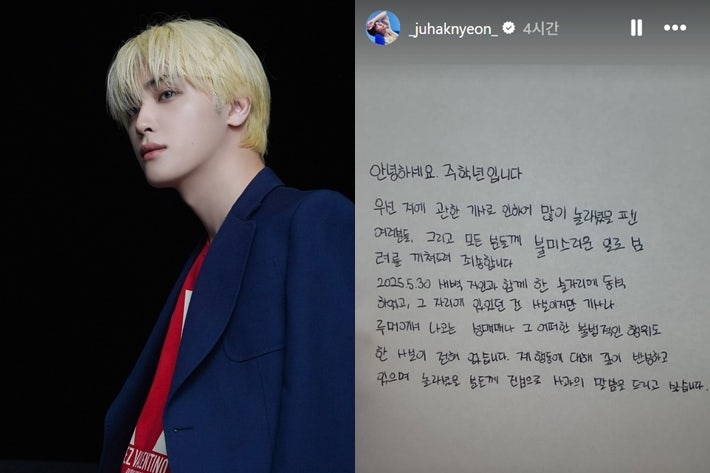 _juhaknyeon_ 4시간
안녕하세요. 주학년입니다
우선 저에 관한 기사로 인하여 많이 놀라셨을 팬
여러분들, 그리고 모든 분들께 불미스러운 일로 심
려를 끼쳐드려 죄송합니다
2025.5.30 새벽 지인과 함께 한 술자리에 동석
하였고, 그 자리에 있었던 건 사실이지만 기사나
루머에서 나오는 성매매나 그 어떠한 불법적인 행위도
한 사실이 전혀 없습니다. 제 행동에 대해 깊이 반성하고
있으며 놀라셨을 분들께 진심으로 사과의 말씀을 드리고 싶습니다.
EZ VALENTINO